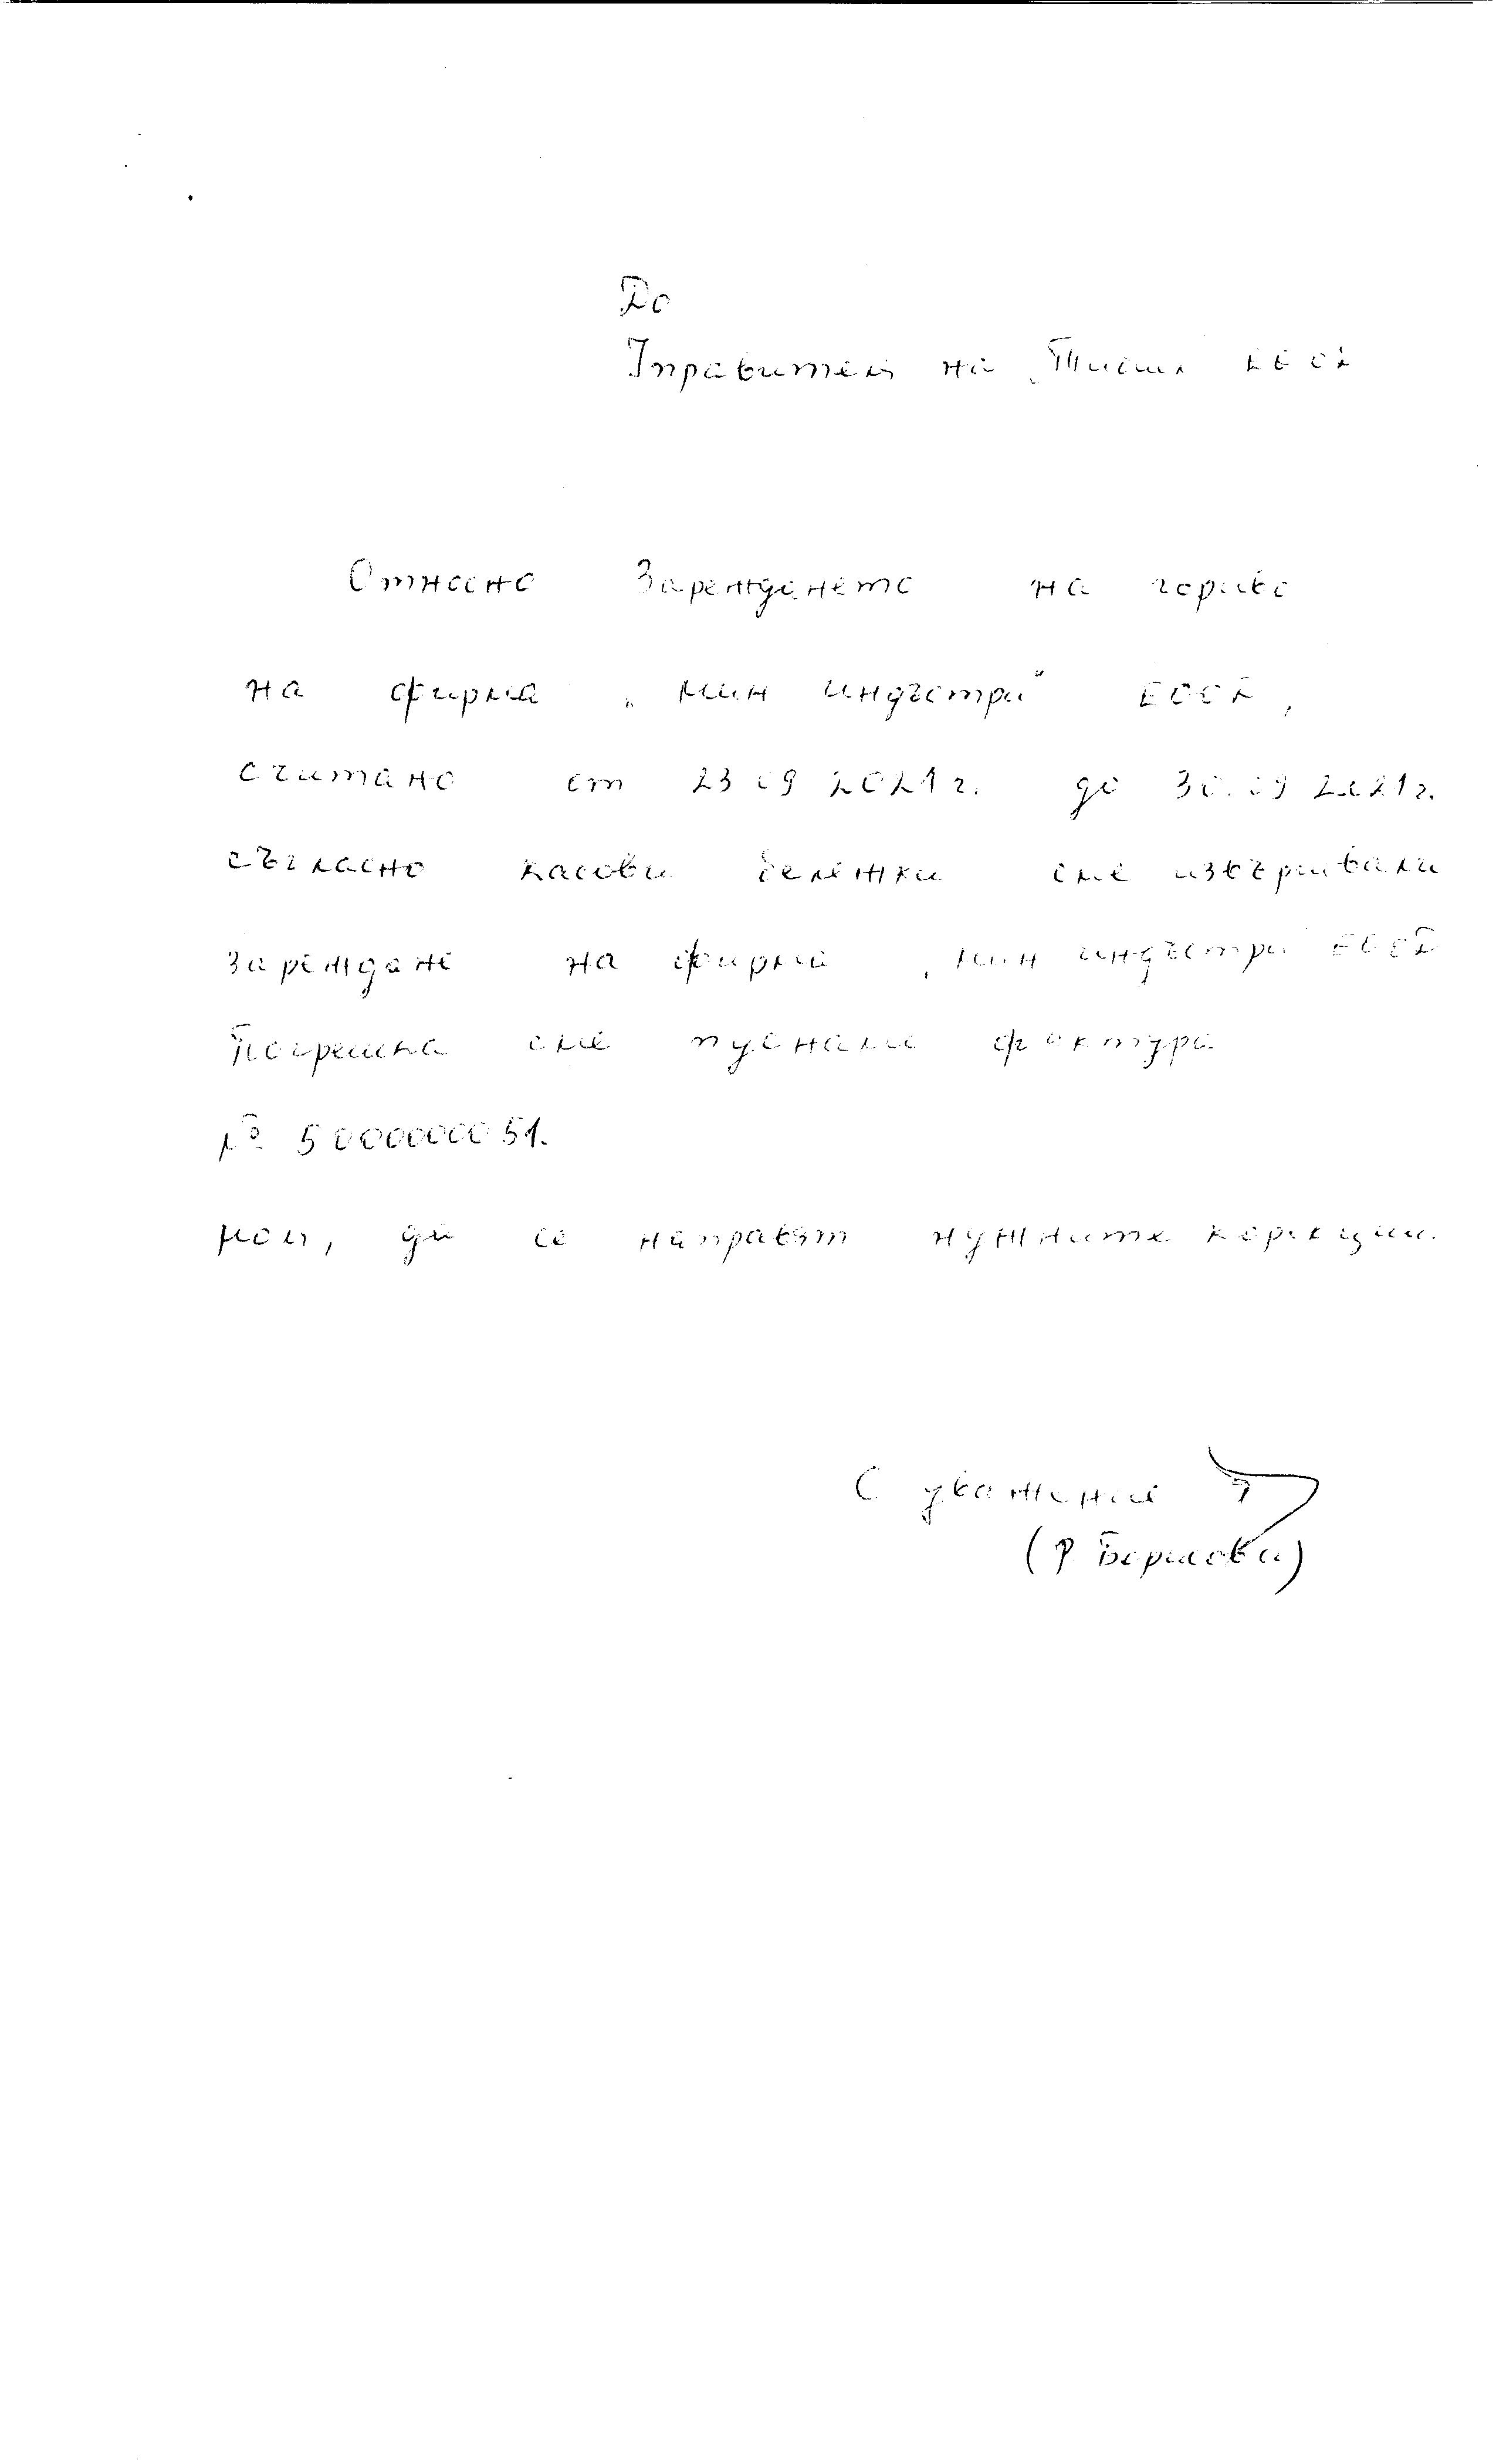 До
Управителя на
Относно зареждането на гориво
на фирма "Мин индъстри" ЕООД,
считано от 23.09.2021г. до 30.09.2021г.
съгласно касови бележки сме извършвали
зареждане на фирма "Мин индъстри ЕООД
Погрешка сме пуснали фактура
№ 5000000051.
Моля, да се направят нужните корекции.
С уважение
(Р. Борисова)